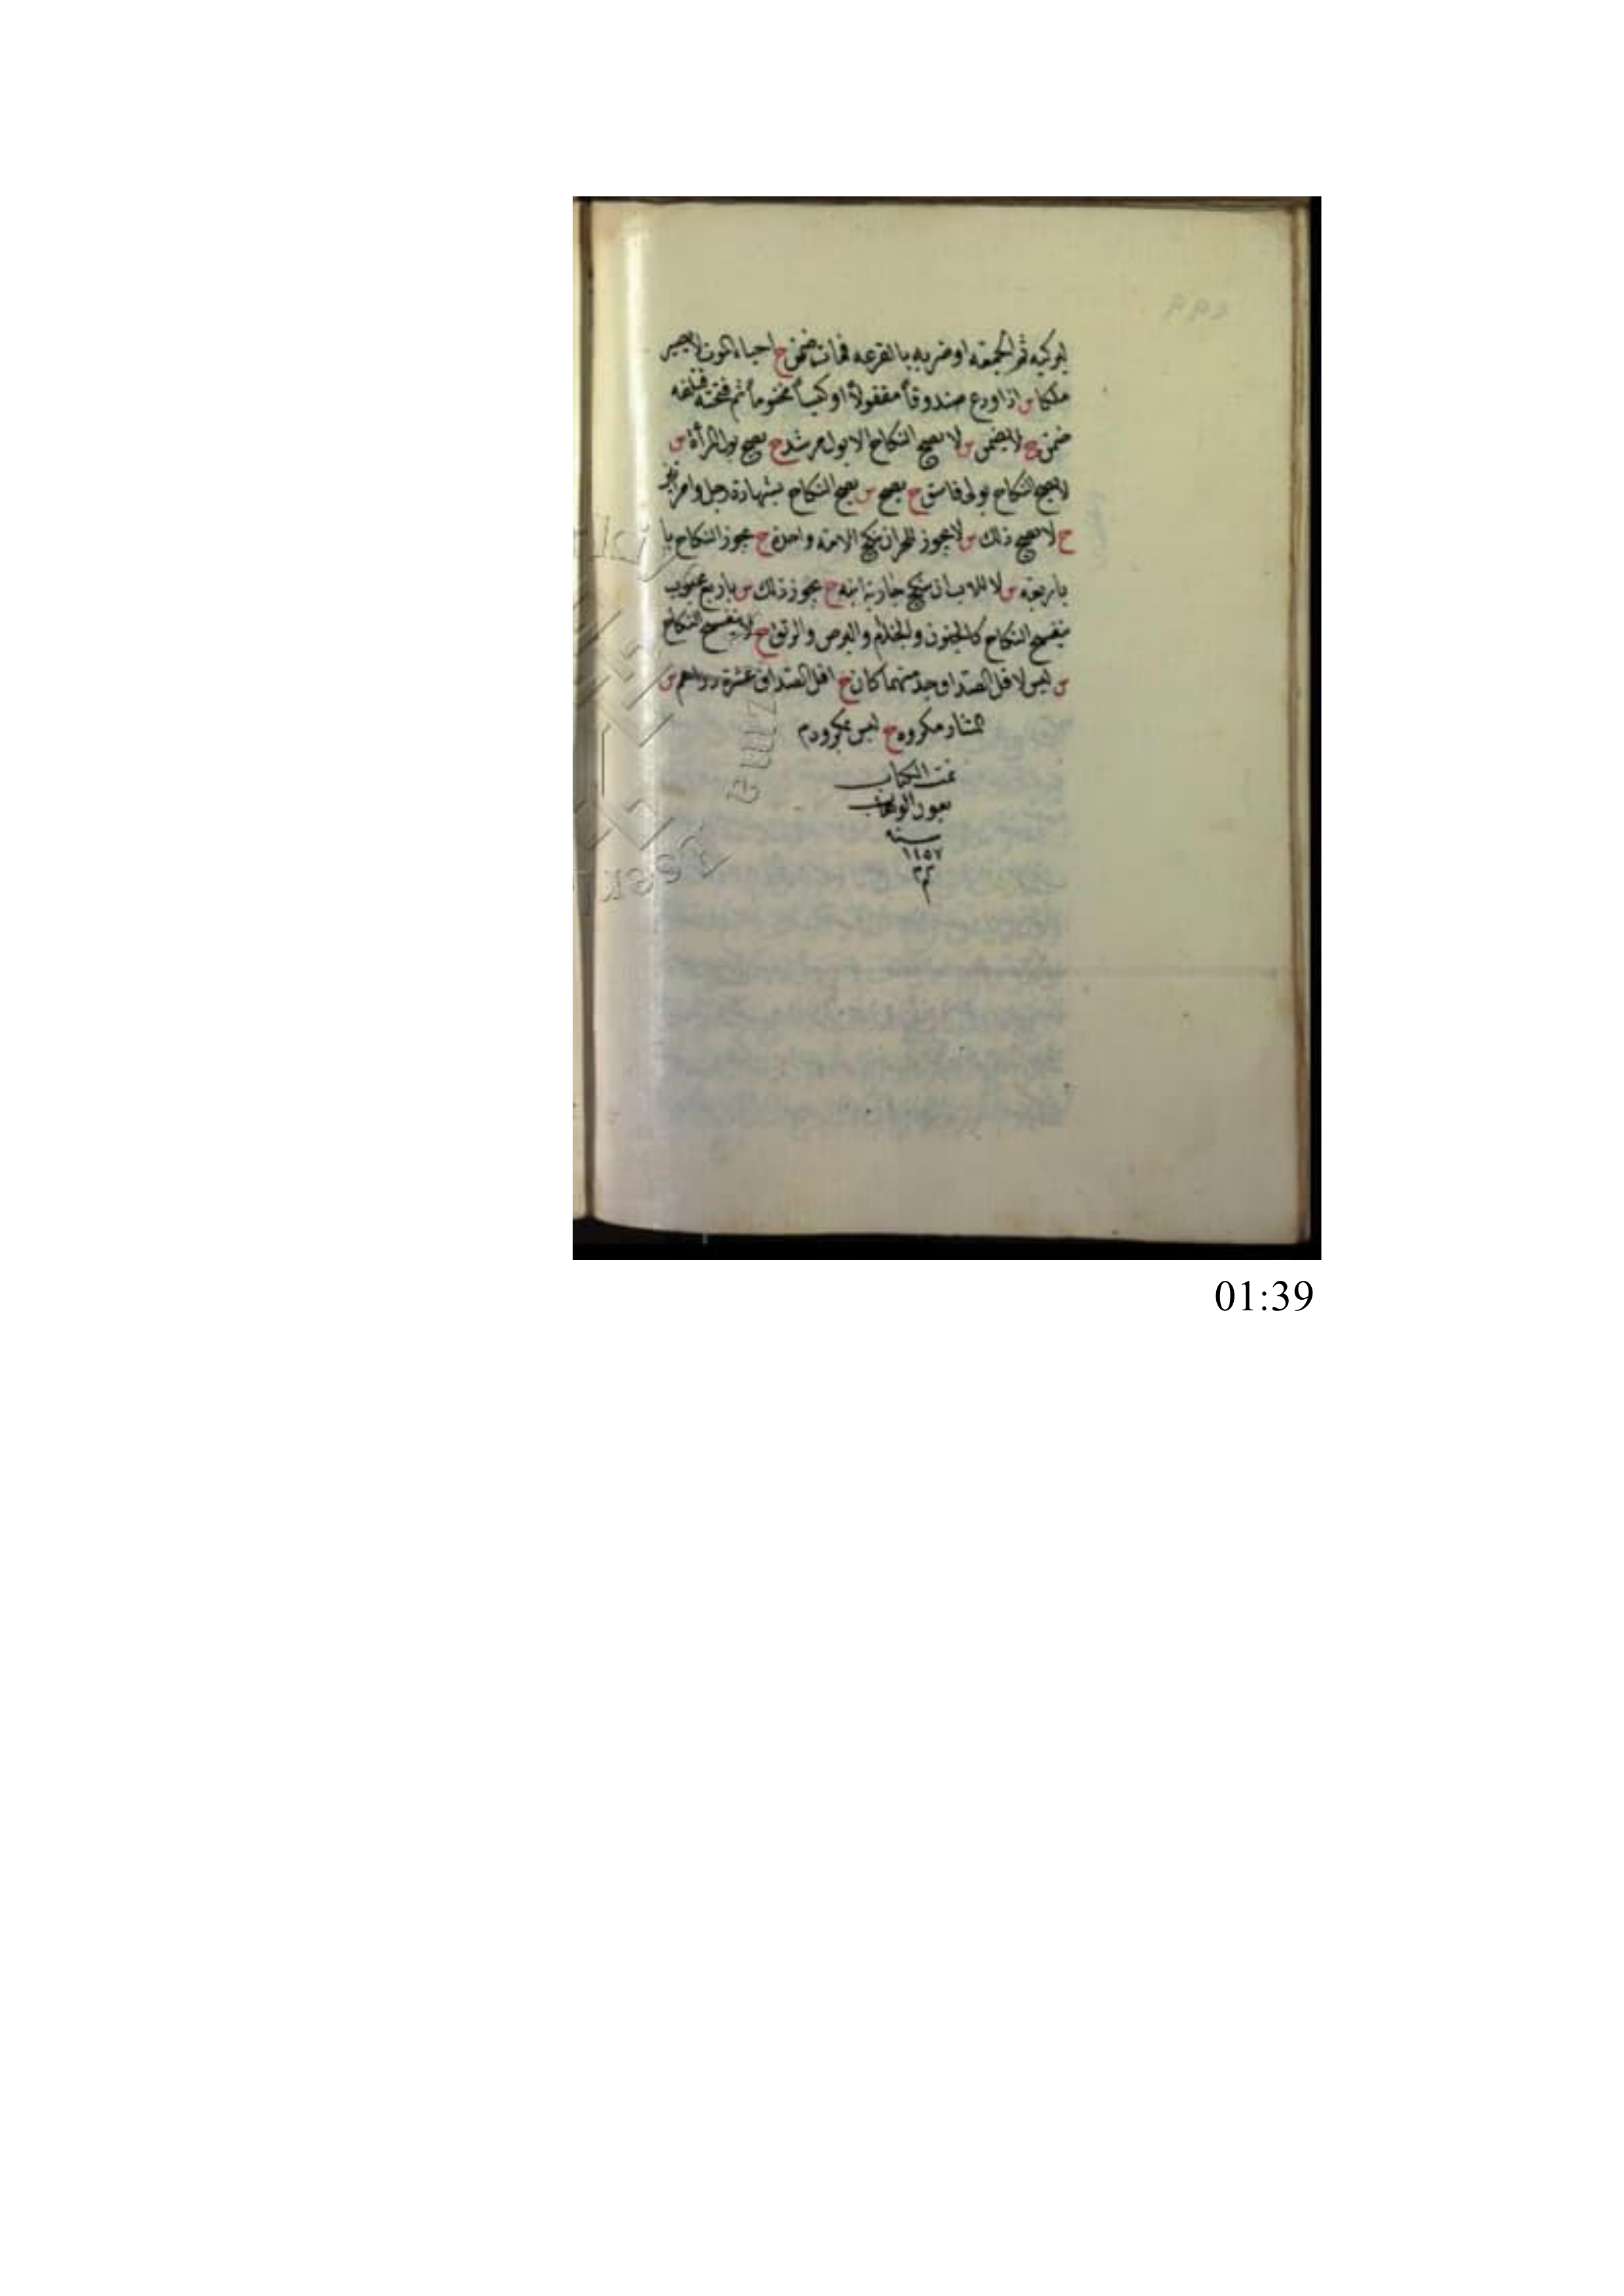 ليركبه ثم الجمته او ضربه بالقرعه فمات ضمن ح احياء الموت لا يصير
ملكا س اذا اودع صندوقاً مقفولاً او كيساً مختوماً ثم فتحته فتلفه
ضمن ح لا يضمن س لا يصح النكاح الا بولي مرشد ح يصح بولي المرأة س
لا يصح النكاح بولى فاسق ح يصح س يصح النكاح بشهادة رجل وامراتين
ح لا يصح ذلك س لا يجوز للحران ينكح الامة واحدة ح يجوز النكاح با
باربعه س لا للاب ان ينكح جارية ابنه ح يجوز ذلك س باربع عيوب
ينفسخ النكاح كالجنون والجذام والبرص والرتق ح لا ينفسخ النكاح
س ليس لاقل الصداق حد مهما كان ح اقل الصداق عشرة دراهم س
النثار مكروه ح ليس بمكروه م
تمت الكتاب
بعون الوهاب
سنه
١٢٥٧
م م
م
01:39